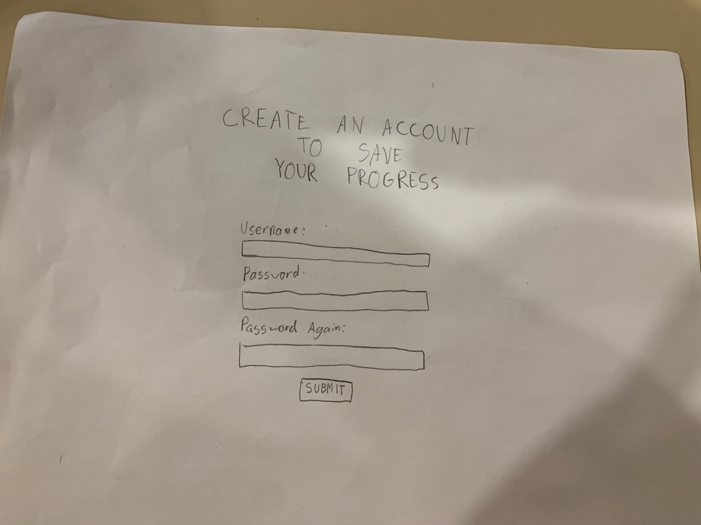 CREATE AN ACCOUNT
TO SAVE
YOUR PROGRESS
Username:
Password.
Password Again:
SUBMIT